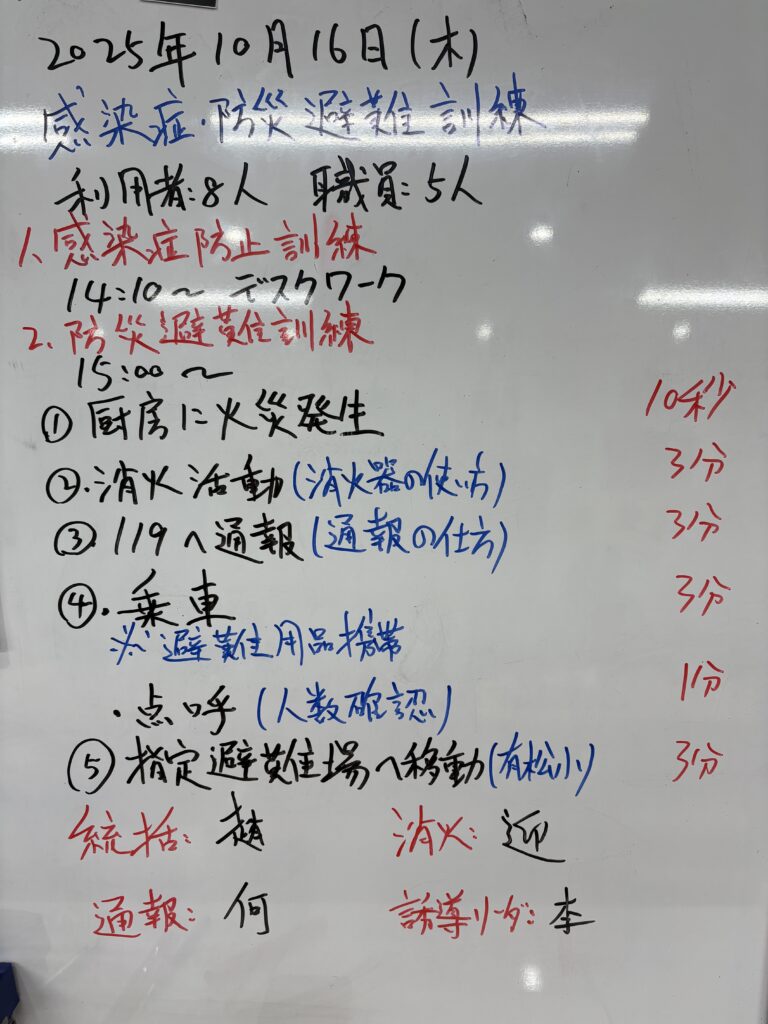 2025年10月16日(木)
感染症・防災避難訓練
利用者:8人 職員:5人
1、感染症防止訓練
14:10～ デスクワーク
2、防災避難訓練
15:00～
① 厨房に火災発生 10秒
②・消火活動(消火器の使い方) 3分
③・119へ通報(通報の仕方) 3分
④・乗車 3分
※避難用品携帯
・点呼(人数確認) 1分
⑤ 指定避難場へ移動(有松小) 3分
統括: 趙 消火: 迎
通報: 何 誘導リーダ: 李